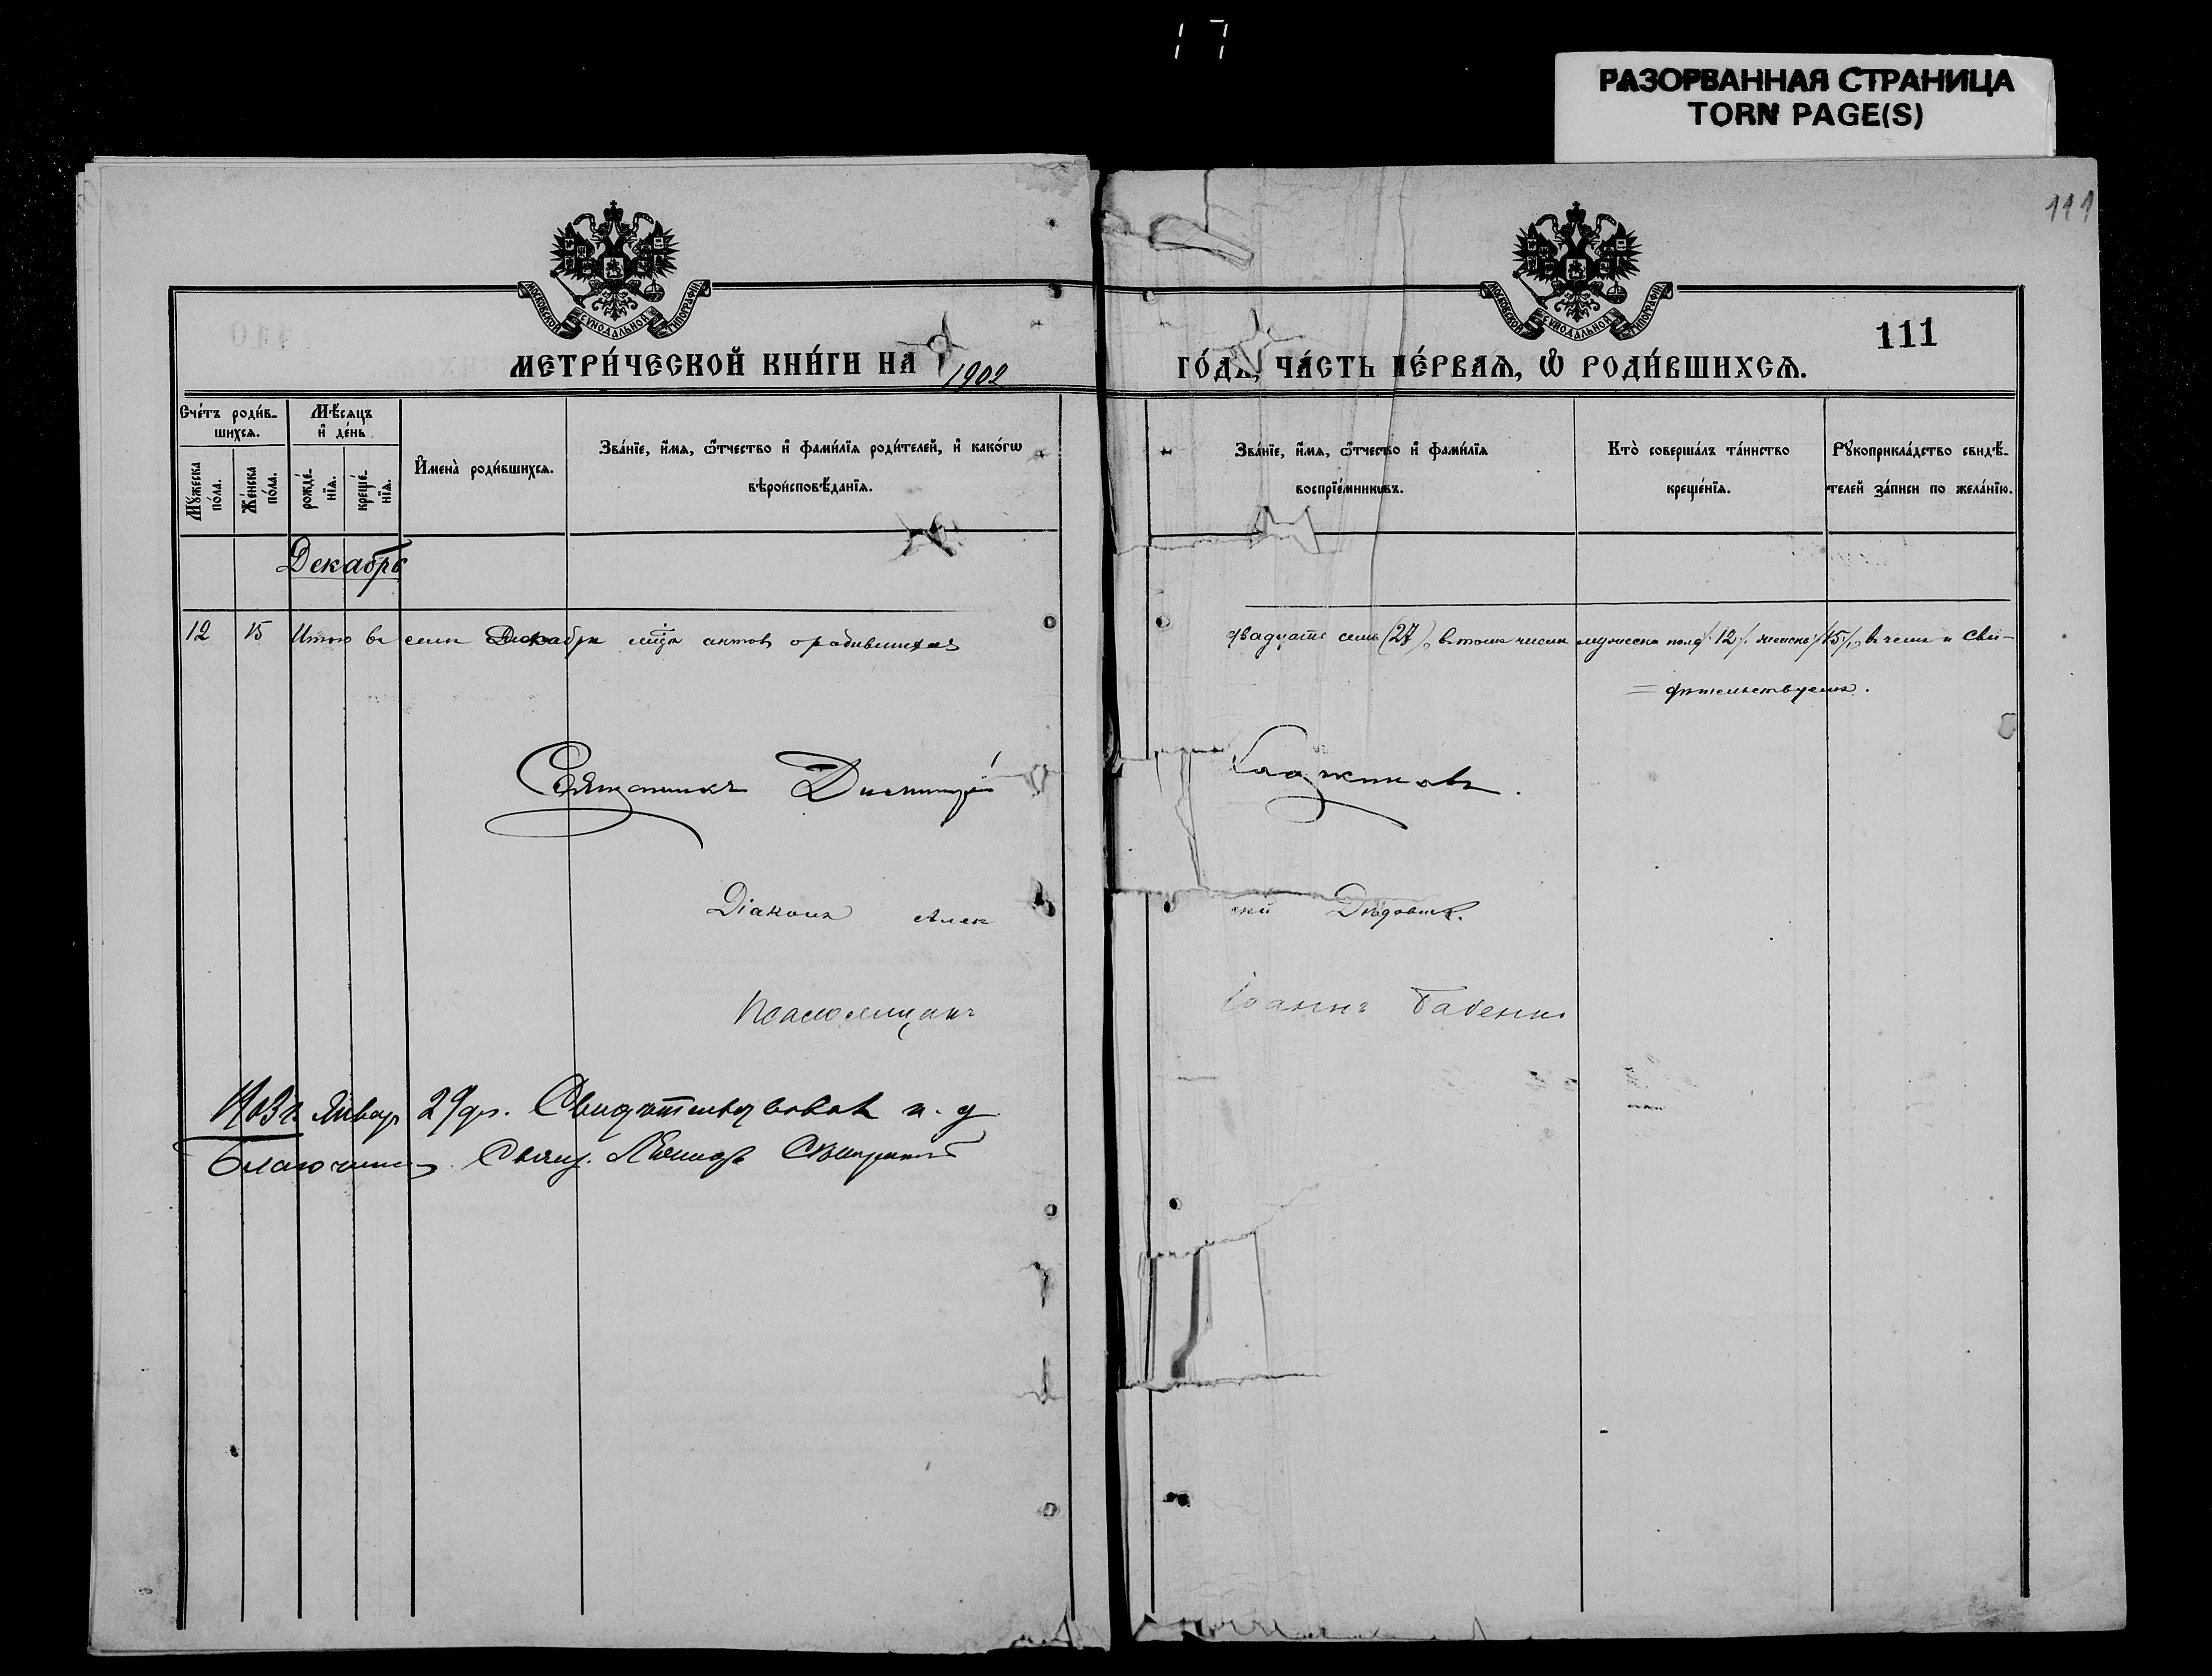 17
РАЗОРВАННАЯ СТРАНИЦА
TORN PAGE(S)
111
МОСКОВСКОЙ СѴНОДАЛЬНОЙ ТИПОГРАФІИ
МОСКОВСКОЙ СѴНОДАЛЬНОЙ ТИПОГРАФІИ
111
МЕТРИ́ЧЕСКОЙ КНИ́ГИ НА 1902 ГО́ДЪ, ЧА́СТЬ ПЕ́РВАѦ, Ѿ РОДИ́ВШИХСѦ.
Сче́тъ роди́в-
шихсѧ.
Мꙋжеска
по́ла.
Же́нска
по́ла.
Мѣ́сѧцъ
и҆ де́нь
рожде́-
нїѧ.
креще́-
нїѧ.
И҆мена̀ роди́вшихсѧ.
Зва́нїе, и҆́мѧ, ѻ҆́тчество и҆ фами́лїѧ роди́телей, и҆ како́гѡ
вѣроисповѣ́данїѧ.
Зва́нїе, и҆́мѧ, ѻ҆́тчество и҆ фами́лїѧ
воспрїе́мникѡвъ.
Кто̀ соверша́лъ та́инство
креще́нїѧ.
Рꙋкоприкла́дство свидѣ́-
телей за́писи по жела́нїю.
Декабрь
12 15 Итого въ семъ Декабрѣ мѣсяцѣ актовъ о родившихся двадцать семь (27), въ томъ числѣ мужеска пола 12, женска 15, въ чемъ и сви-
= дѣтельствуемъ.
Священникъ Димитрій
Діаконъ Алек скій
Псаломщикъ Іоаннъ Бабенко
1903 г. Январ 29 дн. Свидѣтельствовалъ и. д
Благочинн Свящ.